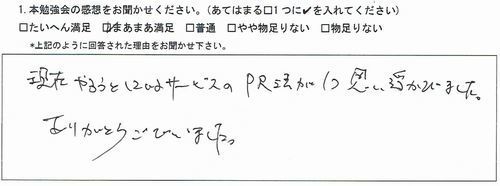 1. 本勉強会の感想をお聞かせください。(あてはまる□1つに✔を入れてください)
□たいへん満足 ☑まあまあ満足 □普通 □やや物足りない □物足りない
*上記のように回答された理由をお聞かせ下さい。
現在やろうとしているサービスのPR点が1つ思い浮かびました。
ありがとうございました。